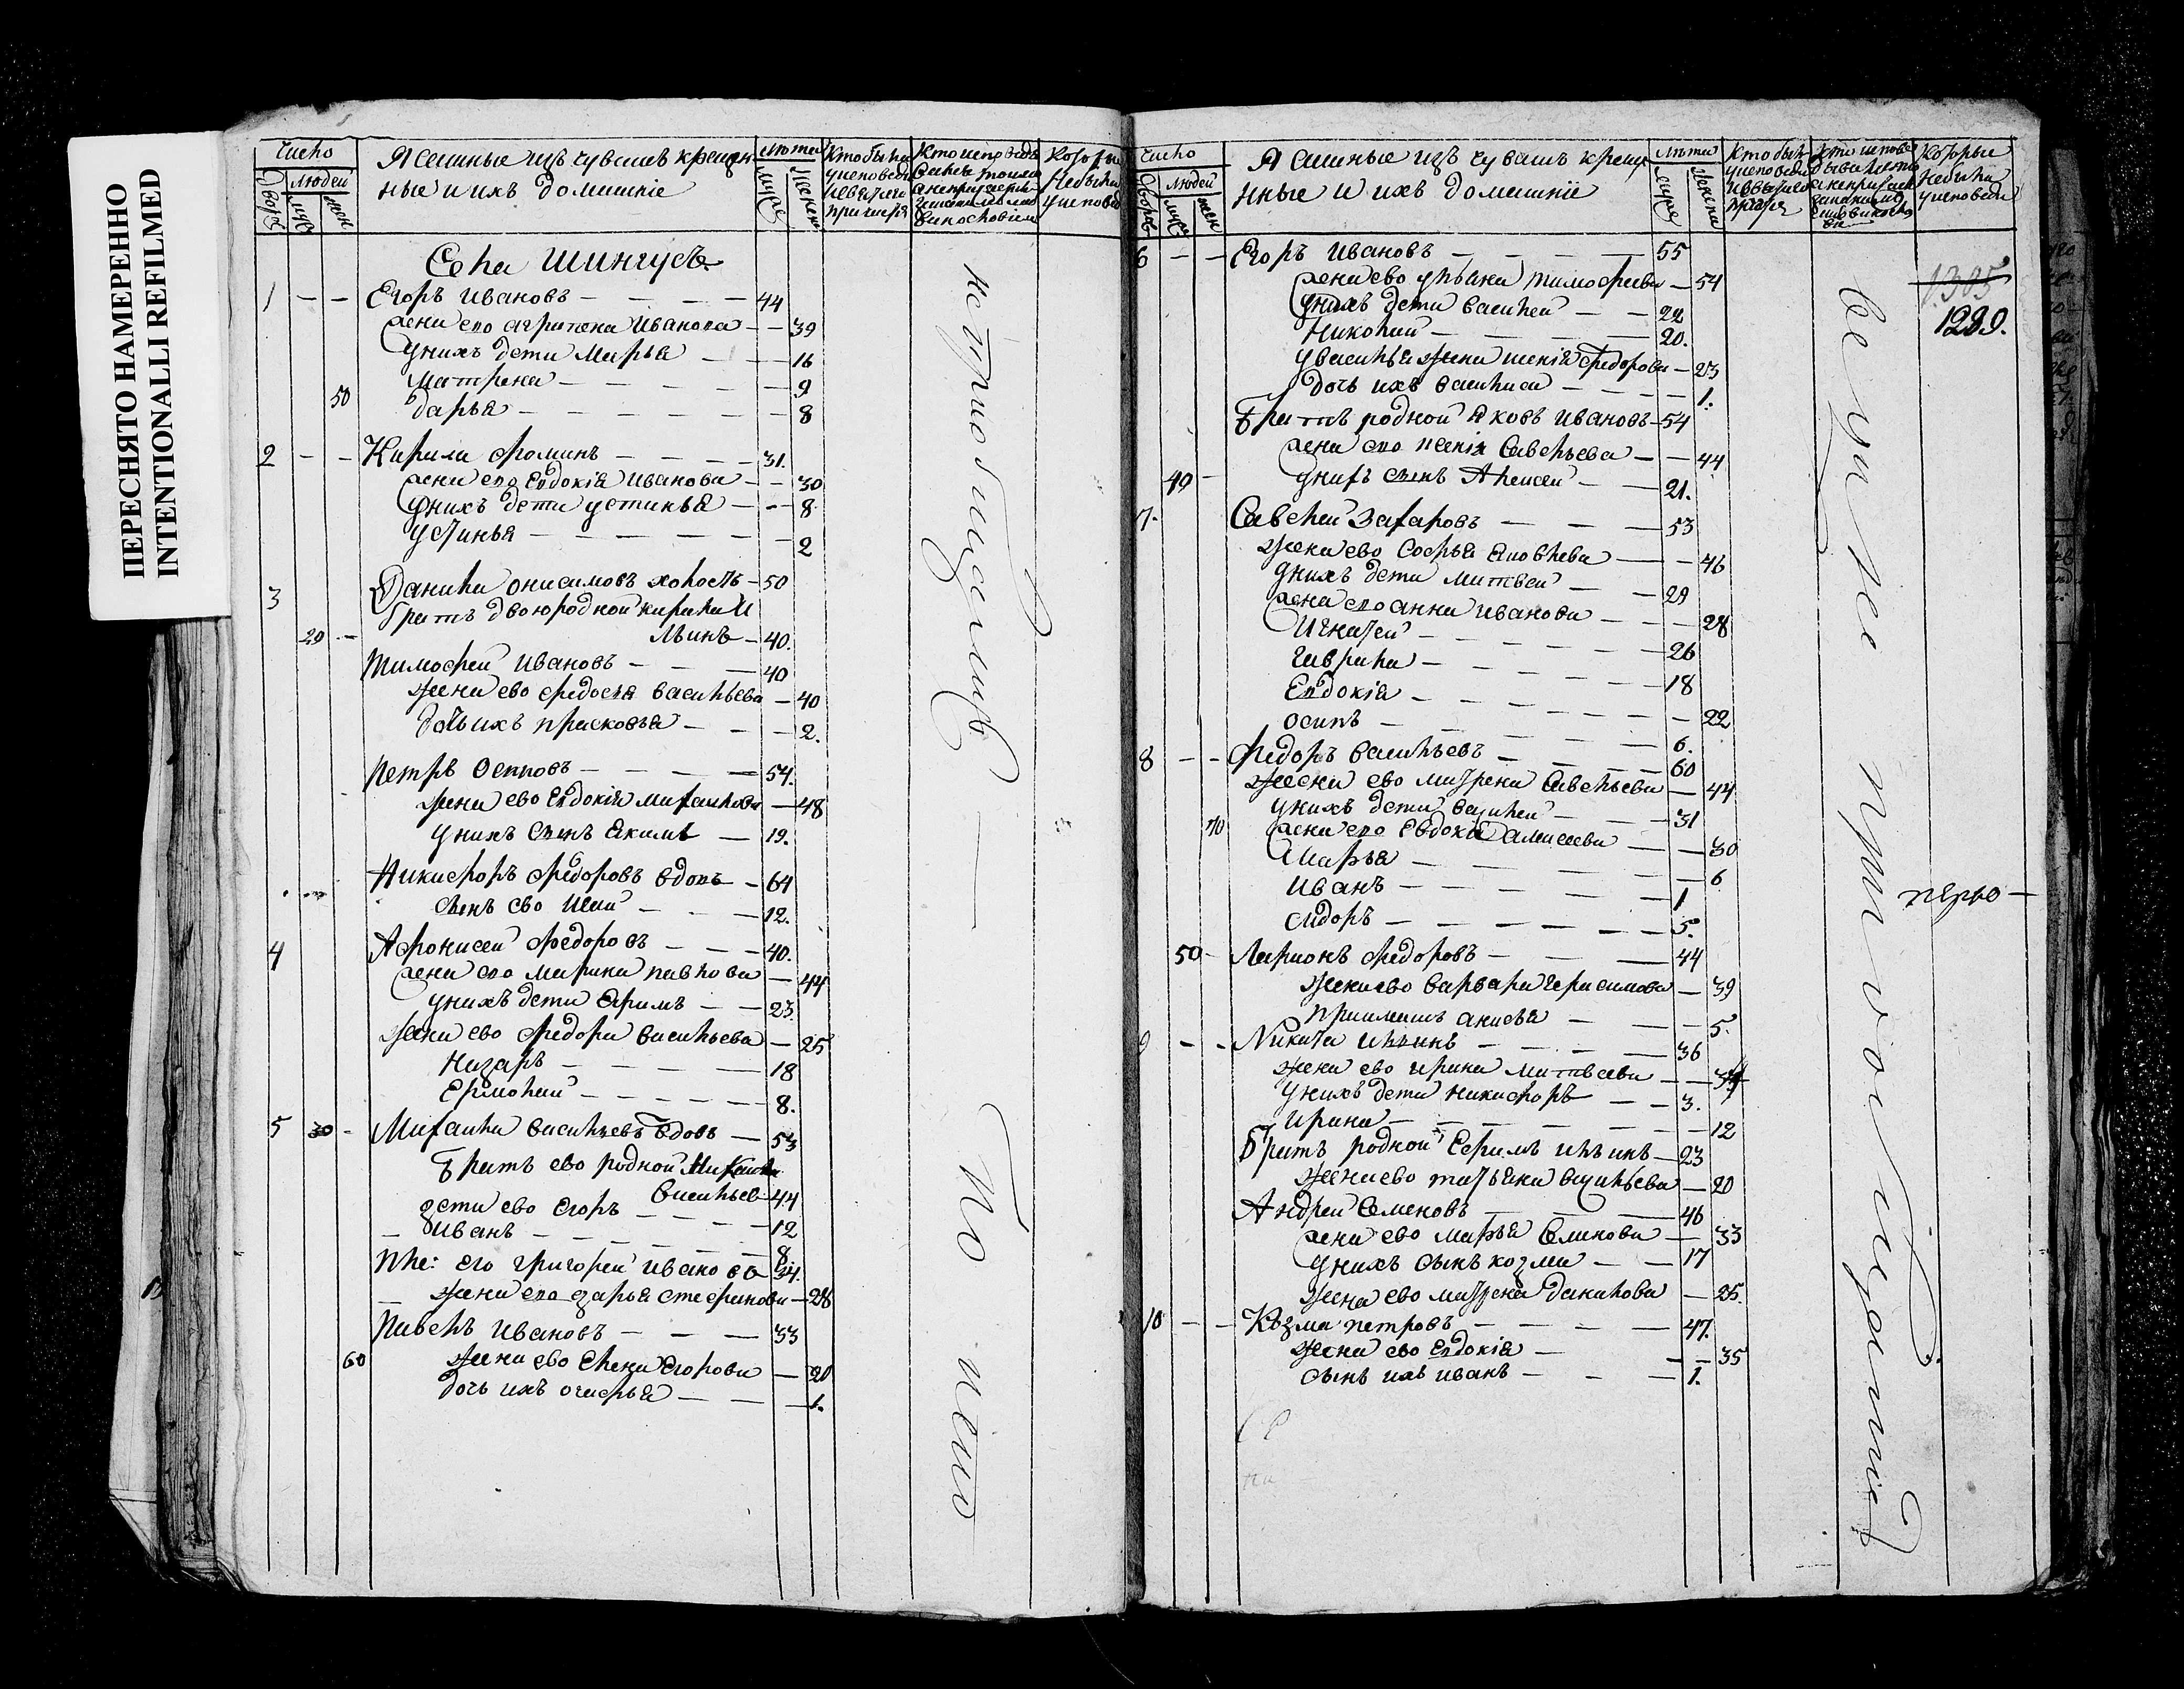 ПЕРЕСНЯТО НАМЕРЕННО
INTENTIONALLI REFILMED
Число
Дворъ
Людей
муж
жен
Ясашные изъ чувашъ крещен
ные и ихъ домашніе
лѣта
муже
женска
Кто были
у исповеди
и св: таго
причастія
Села Шингусъ
1 — — Егоръ Ивановъ — 44
жена ево Агрипена Иванова — 39
у нихъ дети Марья — 16
Матрена — 9
50 Дарья — 8
2 — — Кирила Фоминъ — 31.
жена ево Евдокія Иванова — 30
у нихъ дети Устинья — 8
Устинья — 2
3 Данила Онисимовъ холостъ — 50
братъ двоюродной Кирила И
20 — льинъ — 40.
Тимофей Ивановъ — 40
жена ево Федосья Васильева — 40
дочь ихъ Прасковья — 2.
Петръ Осиповъ — 54.
жена ево Евдокія Михаилова — 48
у нихъ сынъ Акимъ — 19.
Никифоръ Федоровъ вдовъ — 64
сынъ ево — 12.
4 Афонасей Федоровъ — 40.
жена ево Марина Павлова — 44
у нихъ дети Ефимъ — 23.
жена ево Федора Васильева — 25
Назаръ — 18
Ермолай — 8.
5 30 — Михаила Васильевъ вдовъ — 53
братъ ево родной Михаила
Васильев 44
дети ево Егоръ — 12
Иванъ — 8
пле: его Григорей Ивановъ 34.
жена ево Дарья Стефанова — 28
Павелъ Ивановъ — 33
60 жена ево Елена Егорова — 20
дочь ихъ — 1.
Число
Дворъ
Людей
муж
жен
Ясашные изъ чувашъ креще
нные и ихъ домашніе
лѣта
муже
женска
Которые
не были
у исповеди
6 — — Егоръ Ивановъ — 55
жена ево Ульяна Тимофеева — 54
у нихъ дети Василей — 22
Николай — 20.
у Василья жена Федорова — 23
дочь ихъ Василиса — 1.
братъ родной Яковъ Ивановъ — 54
жена ево Ксенія Савельева — 44
40 — у нихъ сынъ Алексей — 21.
7. Савелей Захаровъ — 53
жена ево Софья — 46
у нихъ дети Матвей — 29
жена ево Анна Иванова — 28
Игнатей — 26
Гаврила — 18
Евдокія — 22
Осипъ — 6.
8 — — Федоръ Васильевъ — 60
жена ево Матрена Савельева — 44
у нихъ дети Василей — 31
70 жена ево Евдокія Алексеева — 30
Марья — 6
Иванъ — 1
Сидоръ — 5.
50 — Ларионъ Федоровъ — 44
жена ево Варвара Герасимова — 39
приимышъ Анисья — 5.
9 — — Никита Ильинъ — 36
жена ево Ирина Матвеева — 34
у нихъ дети Никифоръ — 3.
Ирина — 12
братъ родной Ефимъ Ильинъ — 23
жена ево Татьяна Васильева — 20
Андрей Семеновъ — 46
жена ево Марья Семенова — 33
у нихъ сынъ Козма — 17
жена ево Матрена Данилова — 25.
10 — — Козма Петровъ — 47.
жена ево Евдокія — 35
сынъ ихъ Иванъ — 1.
1305
1299.